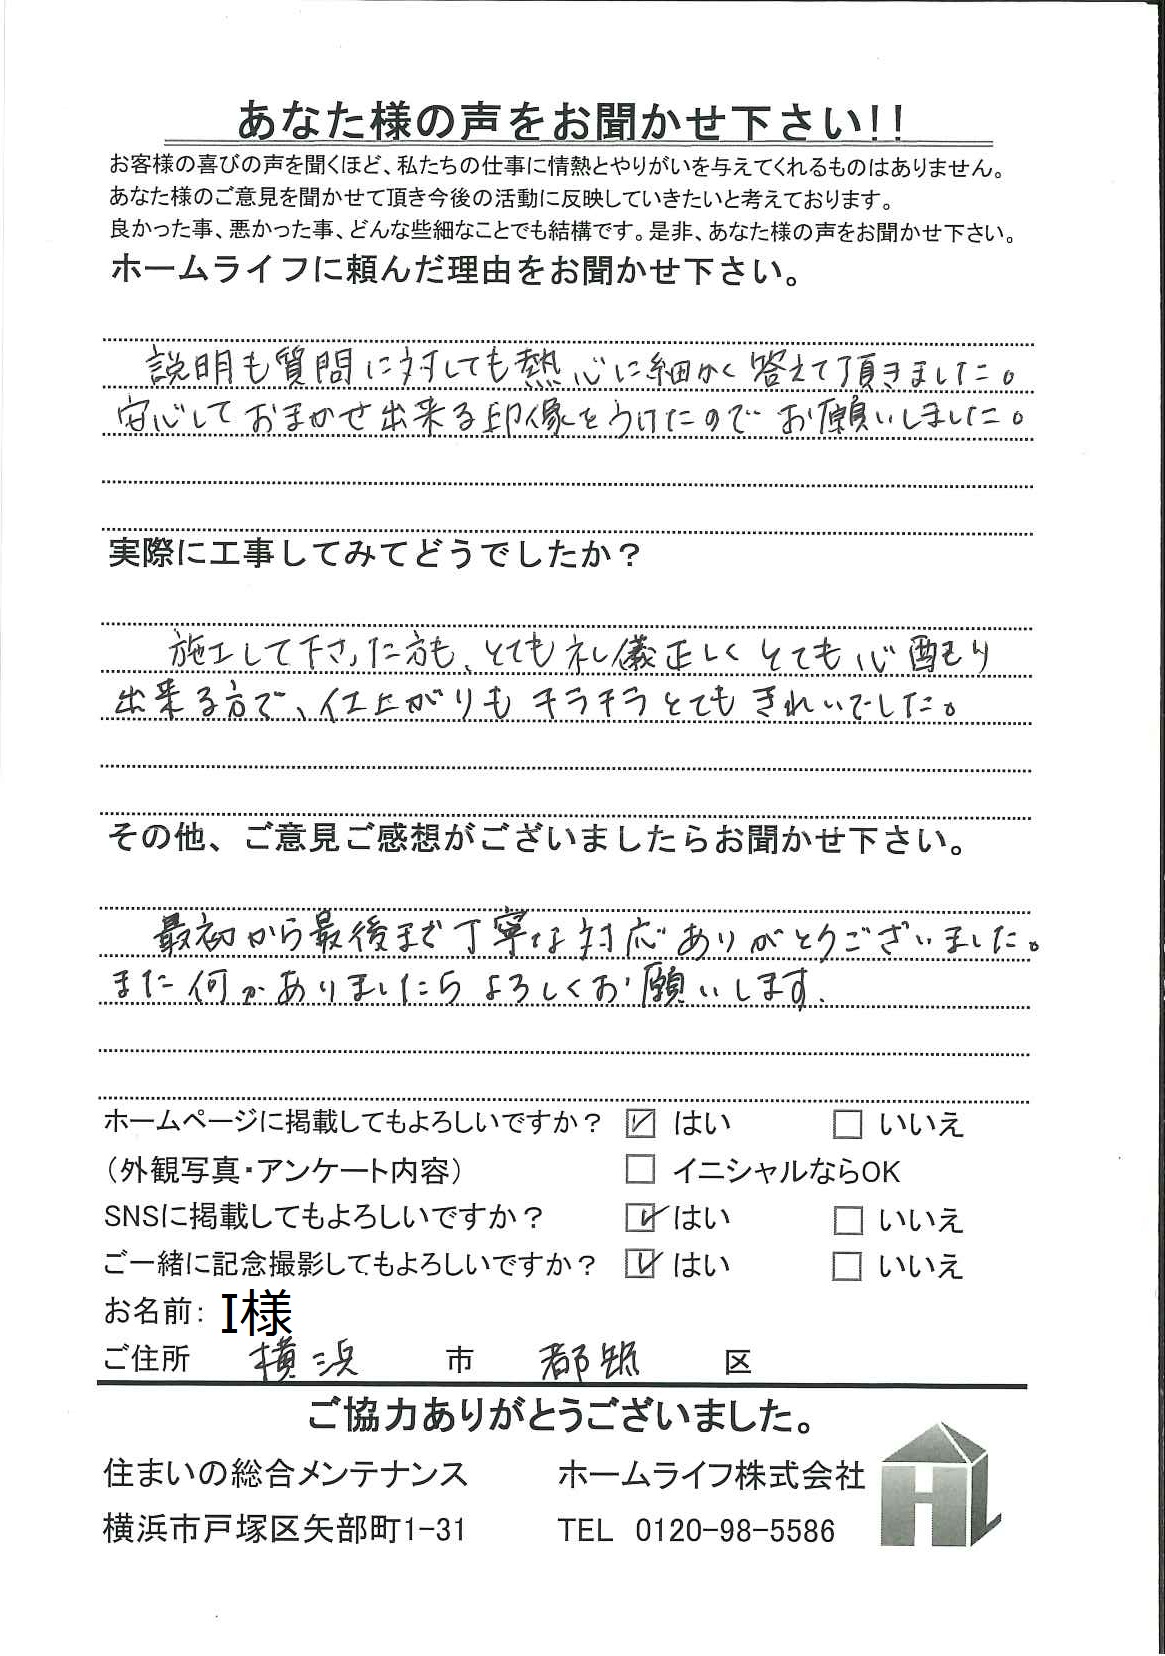 あなた様の声をお聞かせ下さい!!
お客様の喜びの声を聞くほど、私たちの仕事に情熱とやりがいを与えてくれるものはありません。
あなた様のご意見を聞かせて頂き今後の活動に反映していきたいと考えております。
良かった事、悪かった事、どんな些細なことでも結構です。是非、あなた様の声をお聞かせ下さい。
ホームライフに頼んだ理由をお聞かせ下さい。
説明も質問に対しても熱心に細かく答えて頂きました。
安心しておまかせ出来る印像をうけたのでお願いしました。
実際に工事してみてどうでしたか？
施工して下さった方も、とても礼儀正しくとても心配もり
出来る方で、仕上がりもキラキラとてもきれいでした。
その他、ご意見ご感想がございましたらお聞かせ下さい。
最初から最後まで丁寧な対応ありがとうございました。
また何かありましたらよろしくお願いします.
ホームページに掲載してもよろしいですか？ はい いいえ
（外観写真・アンケート内容） イニシャルならOK
SNSに掲載してもよろしいですか？ はい いいえ
ご一緒に記念撮影してもよろしいですか？ はい いいえ
お名前: I様
ご住所 横浜 市 都筑 区
ご協力ありがとうございました。
住まいの総合メンテナンス ホームライフ株式会社
横浜市戸塚区矢部町1-31 TEL 0120-98-5586
HL